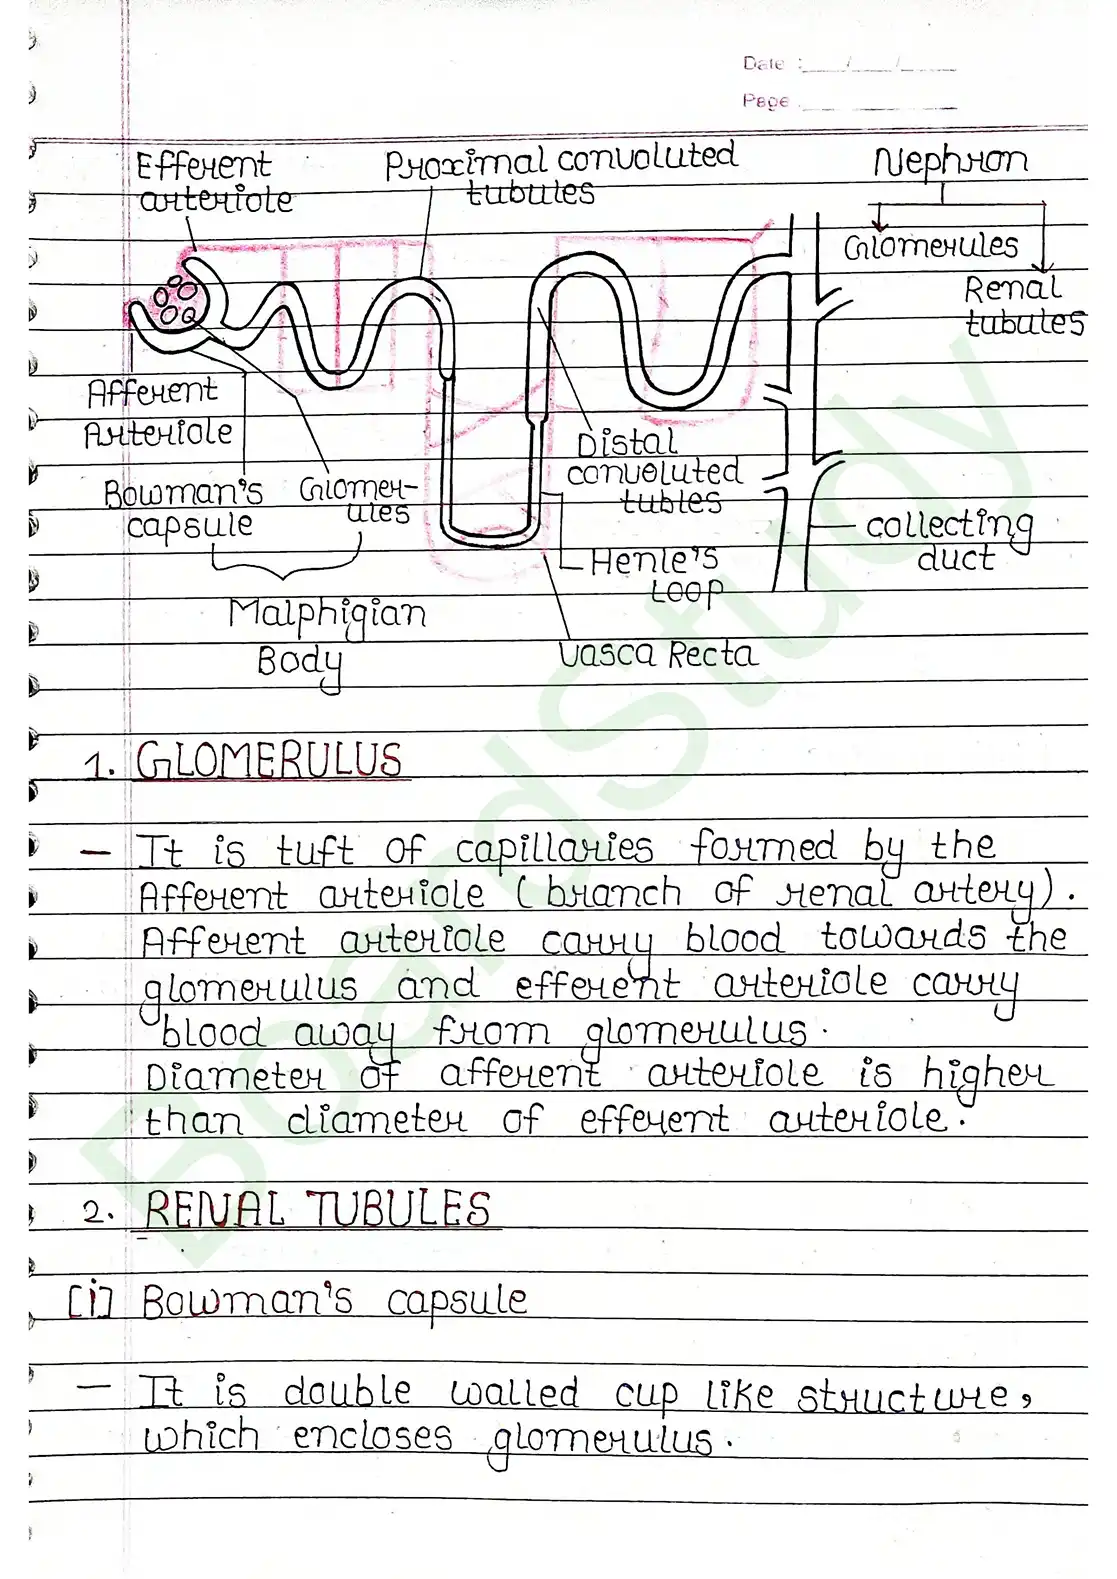 Date :___/___/___
Page
Efferent
arteriole
Proximal convoluted
tubules
Nephron
Glomerules
Renal
tubules
Afferent
Arteriole
Bowman's
capsule
Glomer-
ules
Malphigian
Body
Distal
convoluted
tubles
Henle's
Loop
Vasca Recta
collecting
duct
1. GLOMERULUS
— It is tuft of capillaries formed by the
Afferent arteriole (branch of renal artery).
Afferent arteriole carry blood towards the
glomerulus and efferent arteriole carry
blood away from glomerulus.
Diameter of afferent arteriole is higher
than diameter of efferent arteriole.
2. RENAL TUBULES
[i] Bowman's capsule
— It is double walled cup like structure,
which encloses glomerulus.
BoardStudy